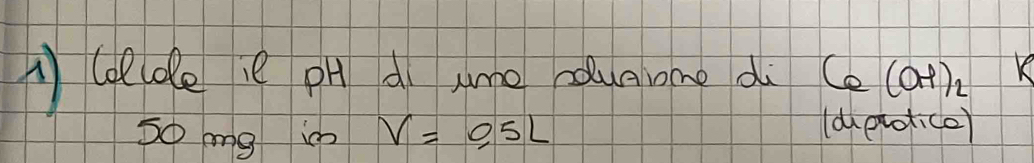 1) Calcola il pH di una soluzione di Ca(OH)₂ K
50 mg in V = 0,5L (diprotica)